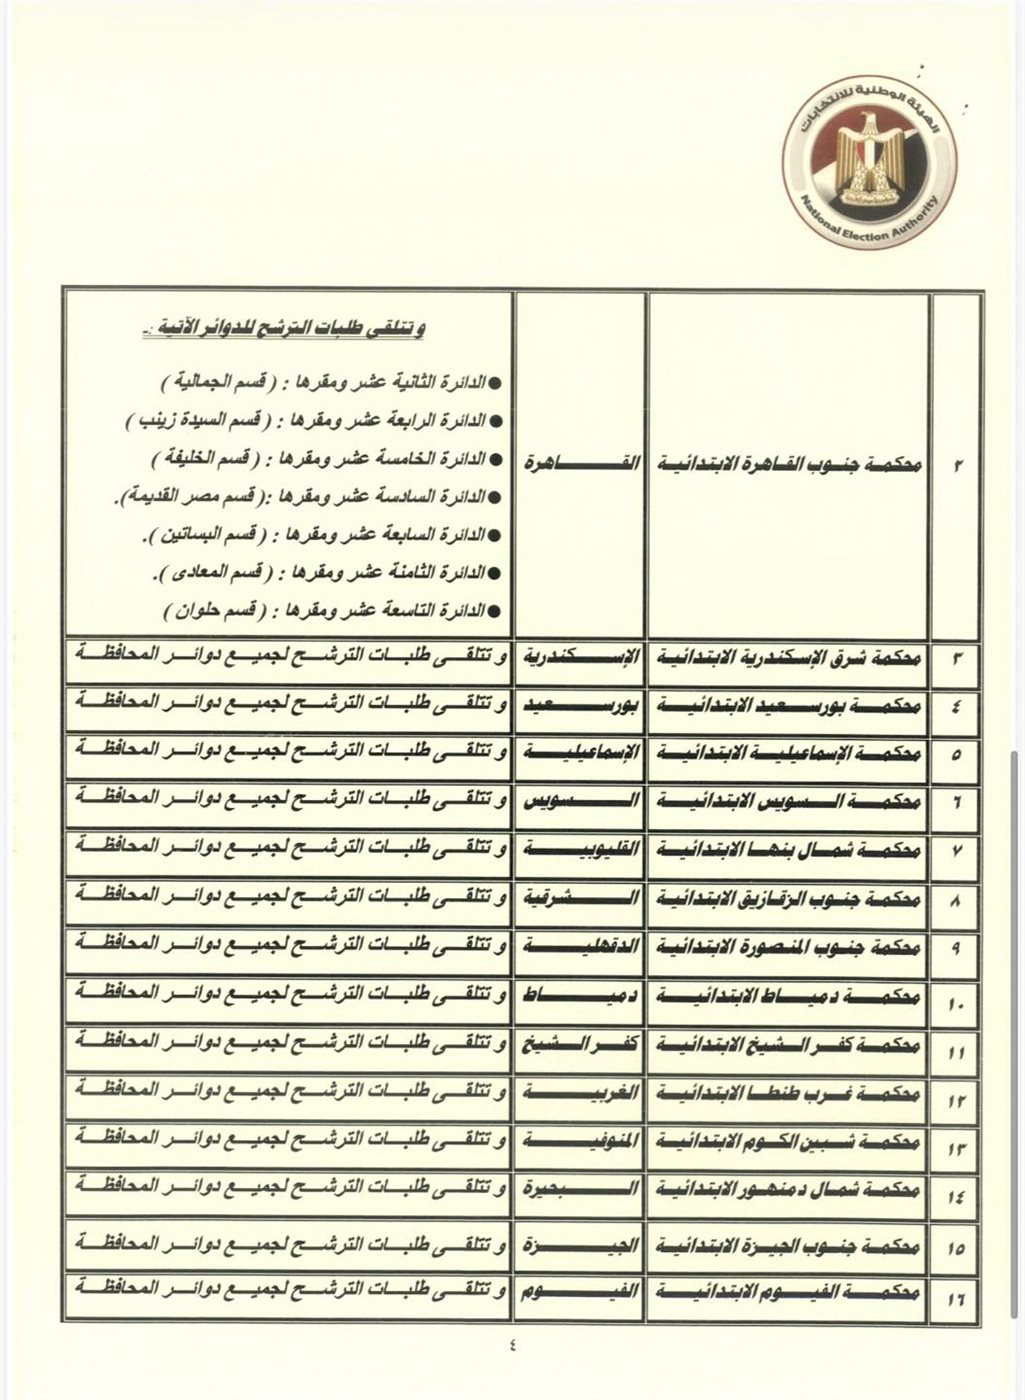 الهيئة الوطنية للانتخابات
National Election Authority
و تتلقى طلبات الترشح للدوائر الآتية :ـ
٢ محكمة جنوب القاهرة الابتدائية القــاهرة
● الدائرة الثانية عشر ومقرها : ( قسم الجمالية )
● الدائرة الرابعة عشر ومقرها : ( قسم السيدة زينب )
● الدائرة الخامسة عشر ومقرها : ( قسم الخليفة )
● الدائرة السادسة عشر ومقرها :( قسم مصر القديمة).
● الدائرة السابعة عشر ومقرها : ( قسم البساتين ).
● الدائرة الثامنة عشر ومقرها : ( قسم المعادى ).
● الدائرة التاسعة عشر ومقرها : ( قسم حلوان )
٣ محكمة شرق الإسكندرية الابتدائية الإسكندرية و تتلقى طلبات الترشح لجميع دوائر المحافظة
٤ محكمة بورسعيد الابتدائية بورسعيد و تتلقى طلبات الترشح لجميع دوائر المحافظة
٥ محكمة الإسماعيلية الابتدائية الإسماعيلية و تتلقى طلبات الترشح لجميع دوائر المحافظة
٦ محكمة السويس الابتدائية السويس و تتلقى طلبات الترشح لجميع دوائر المحافظة
٧ محكمة شمال بنها الابتدائية القليوبية و تتلقى طلبات الترشح لجميع دوائر المحافظة
٨ محكمة جنوب الزقازيق الابتدائية الشرقية و تتلقى طلبات الترشح لجميع دوائر المحافظة
٩ محكمة جنوب المنصورة الابتدائية الدقهلية و تتلقى طلبات الترشح لجميع دوائر المحافظة
١٠ محكمة دمياط الابتدائية دمياط و تتلقى طلبات الترشح لجميع دوائر المحافظة
١١ محكمة كفر الشيخ الابتدائية كفر الشيخ و تتلقى طلبات الترشح لجميع دوائر المحافظة
١٢ محكمة غرب طنطا الابتدائية الغربية و تتلقى طلبات الترشح لجميع دوائر المحافظة
١٣ محكمة شبين الكوم الابتدائية المنوفية و تتلقى طلبات الترشح لجميع دوائر المحافظة
١٤ محكمة شمال دمنهور الابتدائية البحيرة و تتلقى طلبات الترشح لجميع دوائر المحافظة
١٥ محكمة جنوب الجيزة الابتدائية الجيزة و تتلقى طلبات الترشح لجميع دوائر المحافظة
١٦ محكمة الفيوم الابتدائية الفيوم و تتلقى طلبات الترشح لجميع دوائر المحافظة
٤